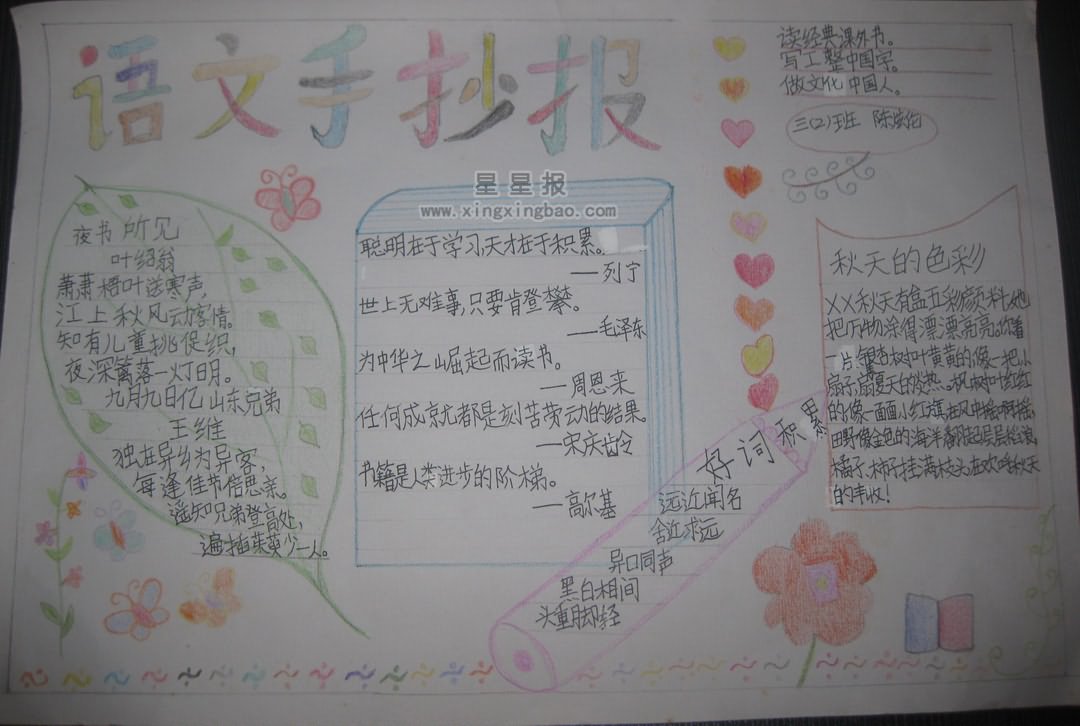 语文手抄报
读经典课外书。
写工整中国字。
做文化中国人。
三(2)班 陈
星星报
www.xingxingbao.com
夜书所见
叶绍翁
萧萧梧叶送寒声,
江上秋风动客情。
知有儿童挑促织,
夜深篱落一灯明。
九月九日亿山东兄弟
王维
独在异乡为异客,
每逢佳节倍思亲。
遥知兄弟登高处,
遍插茱萸少一人。
聪明在于学习,天才在于积累。
——列宁
世上无难事,只要肯登攀。
——毛泽东
为中华之崛起而读书。
——周恩来
任何成就都是刻苦劳动的结果。
——宋庆龄
书籍是人类进步的阶梯。
——高尔基
好词积累
远近闻名
舍近求远
异口同声
黑白相间
头重脚轻
秋天的色彩
XX秋天有盒五彩颜料,她
把万物涂得漂漂亮亮。你看
一片银杏树叶黄黄的像一把小
扇子,扇夏天的炎热。枫树叶红红
的像一面面小红旗在风中摇啊摇。
田野像金色的海洋翻起层层稻浪,
橘子、柿子挂满枝头,在欢唱秋天
的丰收!